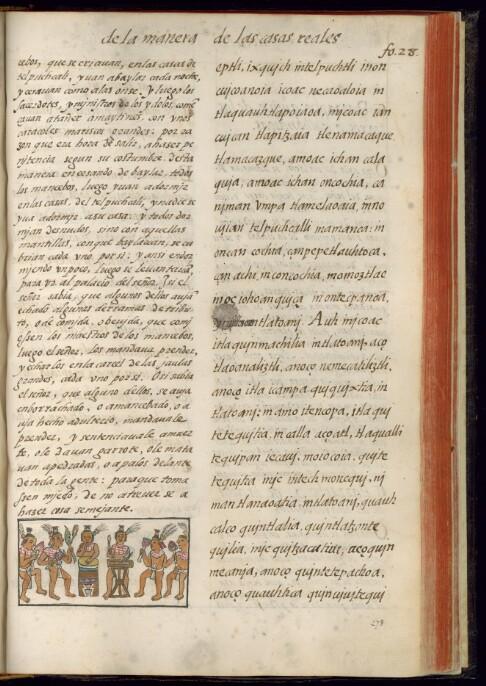 de la manera de las casas reales
fo. 28.
cebos, que se criauan, en las casas de
telpuchcali, y uan abaylar cada noche,
y cesauan como alas onse. y luego los
sacerdotes, y ministros de los ydolos, come
çauan atañer amaytines, con vnos
caracoles mariscos grandes: por ra
zon que era hora de salir, ahaser pe
nitencia segun su costumbre. desta
manera en cesando de baylar todos
los mancebos, luego yuan adormir
en las casas, del telpuchcali, y nadie se
yua adormir asu casa: y todos dor
mjan desnudos, sino con aquellas
mantillas, con que baylauan, se cu
brian cada vno por si: y ansi endor
mjendo vn poco, luego se leuantauan,
para yr al palacio del señor. Si el
señor sabia, que algunos dellos auja
echado algunos derramas de tribu
to, o de comjda, o beujda, que comj
esen los maestros de los mancebos,
luego el señor, los mandaua prender,
y echarlos en la carcel de las jaulas
grandes, cada vno por si. O si sabia
el señor, que alguno dellos, se auja
enborrachado, o amancebado, o a
uja hecho adulterio, mandauale
prender, y sentenciauale amuer
te, o le dauan garrote, o le mata
uan apedradas, o apalos delante
de toda la gente: para que toma
sen mjedo, de no atreuer se a
haser cosa semejante.
epti, ixquich in telpuchtli mon
cujcoanoia icoac necaoaloia in
tlaquauhtlapoiaoa, mjcoac tan
cujcan tlapitzaia tlenamacaque
tlamacazque, amoac ichan cala
quja, amoac ichan oncochia, ça
njman vmpa tlamelaoaia, in no
ujian telpuchcalli mamanca: in
oncan cochia, çan pepetlauhtoca,
çan achi, in concochia, momoztlae
moc iohoan quiça in ontecpanoa,
tlatoanj. Auh injcoac
itla quinmachilia in tlatoanj, aço
tlaoanaliztli, anoço nemecatiliztli,
anoço itla icampa quiquixtia, in
tlatoanj: in amo itencopa, itla qui
tetequitia, in calla açoatl, tlaqualli
tequipan iecauj, moiocoia, quite
tequitia inje intech monequj, nj
man tlanaoatia in tlatoanj, quauh
calco quintlalia, quintlatzonte
quilia, inje quitzacutiuc, aço quin
mecanja, anoço quintetepachoa,
anoço quauhtica quinujujtequj
278